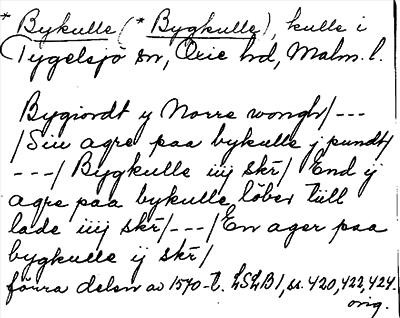 * Bykulle (* Bygkulle), kulle i
Tygelsjö sn, Oxie hd, Malm. l.
Bygiordt y Norre wongh/---
/Siu agre paa bykulle j pundt/
---/ Bygkulle iiij skr/ End ij
agre paa bykulle löber till
lade iiij skr/---/En ager paa
bygkulle ij skr/
förra delen av 1570-t. LSLB1, ss. 420, 422, 424.
orig.